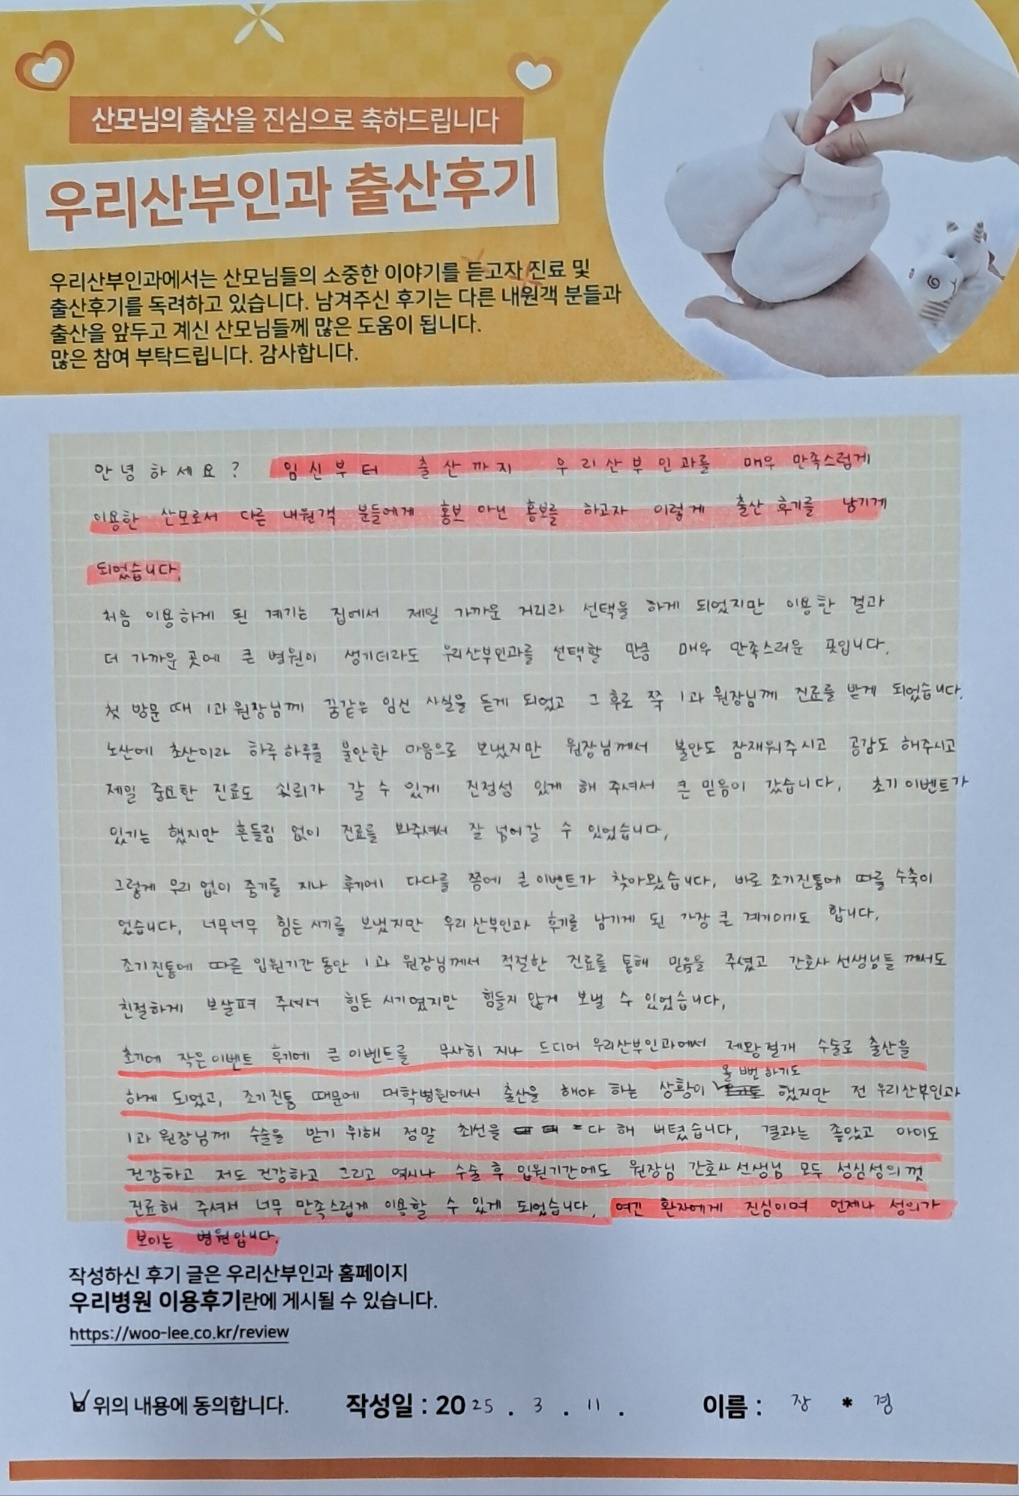 산모님의 출산을 진심으로 축하드립니다
우리산부인과 출산후기
우리산부인과에서는 산모님들의 소중한 이야기를 듣고자 진료 및
출산후기를 독려하고 있습니다. 남겨주신 후기는 다른 내원객 분들과
출산을 앞두고 계신 산모님들께 많은 도움이 됩니다.
많은 참여 부탁드립니다. 감사합니다.
안녕하세요? 임신부터 출산까지 우리산부인과를 매우 만족스럽게
이용한 산모로서 다른 내원객 분들에게 홍보 아닌 홍보를 하고자 이렇게 출산 후기를 남기게
되었습니다.
처음 이용하게 된 계기는 집에서 제일 가까운 거리라 선택을 하게 되었지만 이용한 결과
더 가까운 곳에 큰 병원이 생기더라도 우리산부인과를 선택할 만큼 매우 만족스러운 곳입니다.
첫 방문 때 1과 원장님께 꿈같은 임신 사실을 듣게 되었고 그 후로 쭉 1과 원장님께 진료를 받게 되었습니다.
노산에 초산이라 하루하루를 불안한 마음으로 보냈지만 원장님께서 불안도 잠재워주시고 공감도 해주시고
제일 중요한 진료도 신뢰가 갈 수 있게 진정성 있게 해 주셔서 큰 믿음이 갔습니다. 초기 이벤트가
있기는 했지만 흔들림 없이 진료를 봐주셔서 잘 넘어갈 수 있었습니다.
그렇게 우리 없이 중기를 지나 후기에 다다를 쯤에 큰 이벤트가 찾아왔습니다. 바로 조기진통에 따를 수축이
었습니다. 너무너무 힘든 시기를 보냈지만 우리산부인과 후기를 남기게 된 가장 큰 계기이기도 합니다.
조기진통에 따른 입원기간 동안 1과 원장님께서 적절한 진료를 통해 믿음을 주셨고 간호사 선생님들 께서도
친절하게 보살펴 주셔서 힘든 시기였지만 힘들지 않게 보낼 수 있었습니다.
초기에 작은 이벤트 후기에 큰 이벤트를 무사히 지나 드디어 우리산부인과에서 제왕절개 수술로 출산을
하게 되었고, 조기진통 때문에 대학병원에서 출산을 해야 하는 상황이 올 뻔 하기도 했지만 전 우리산부인과
1과 원장님께 수술을 받기 위해 정말 최선을 다 해 버텼습니다. 결과는 좋았고 아이도
건강하고 저도 건강하고 그리고 역시나 수술 후 입원기간에도 원장님 간호사 선생님 모두 성심성의껏
진료해 주셔서 너무 만족스럽게 이용할 수 있게 되었습니다. 여긴 환자에게 진심이며 언제나 성의가
보이는 병원입니다.
작성하신 후기 글은 우리산부인과 홈페이지
우리병원 이용후기란에 게시될 수 있습니다.
https://woo-lee.co.kr/review
위의 내용에 동의합니다. 작성일 : 2025 . 3 . 11 . 이름 : 장 * 경